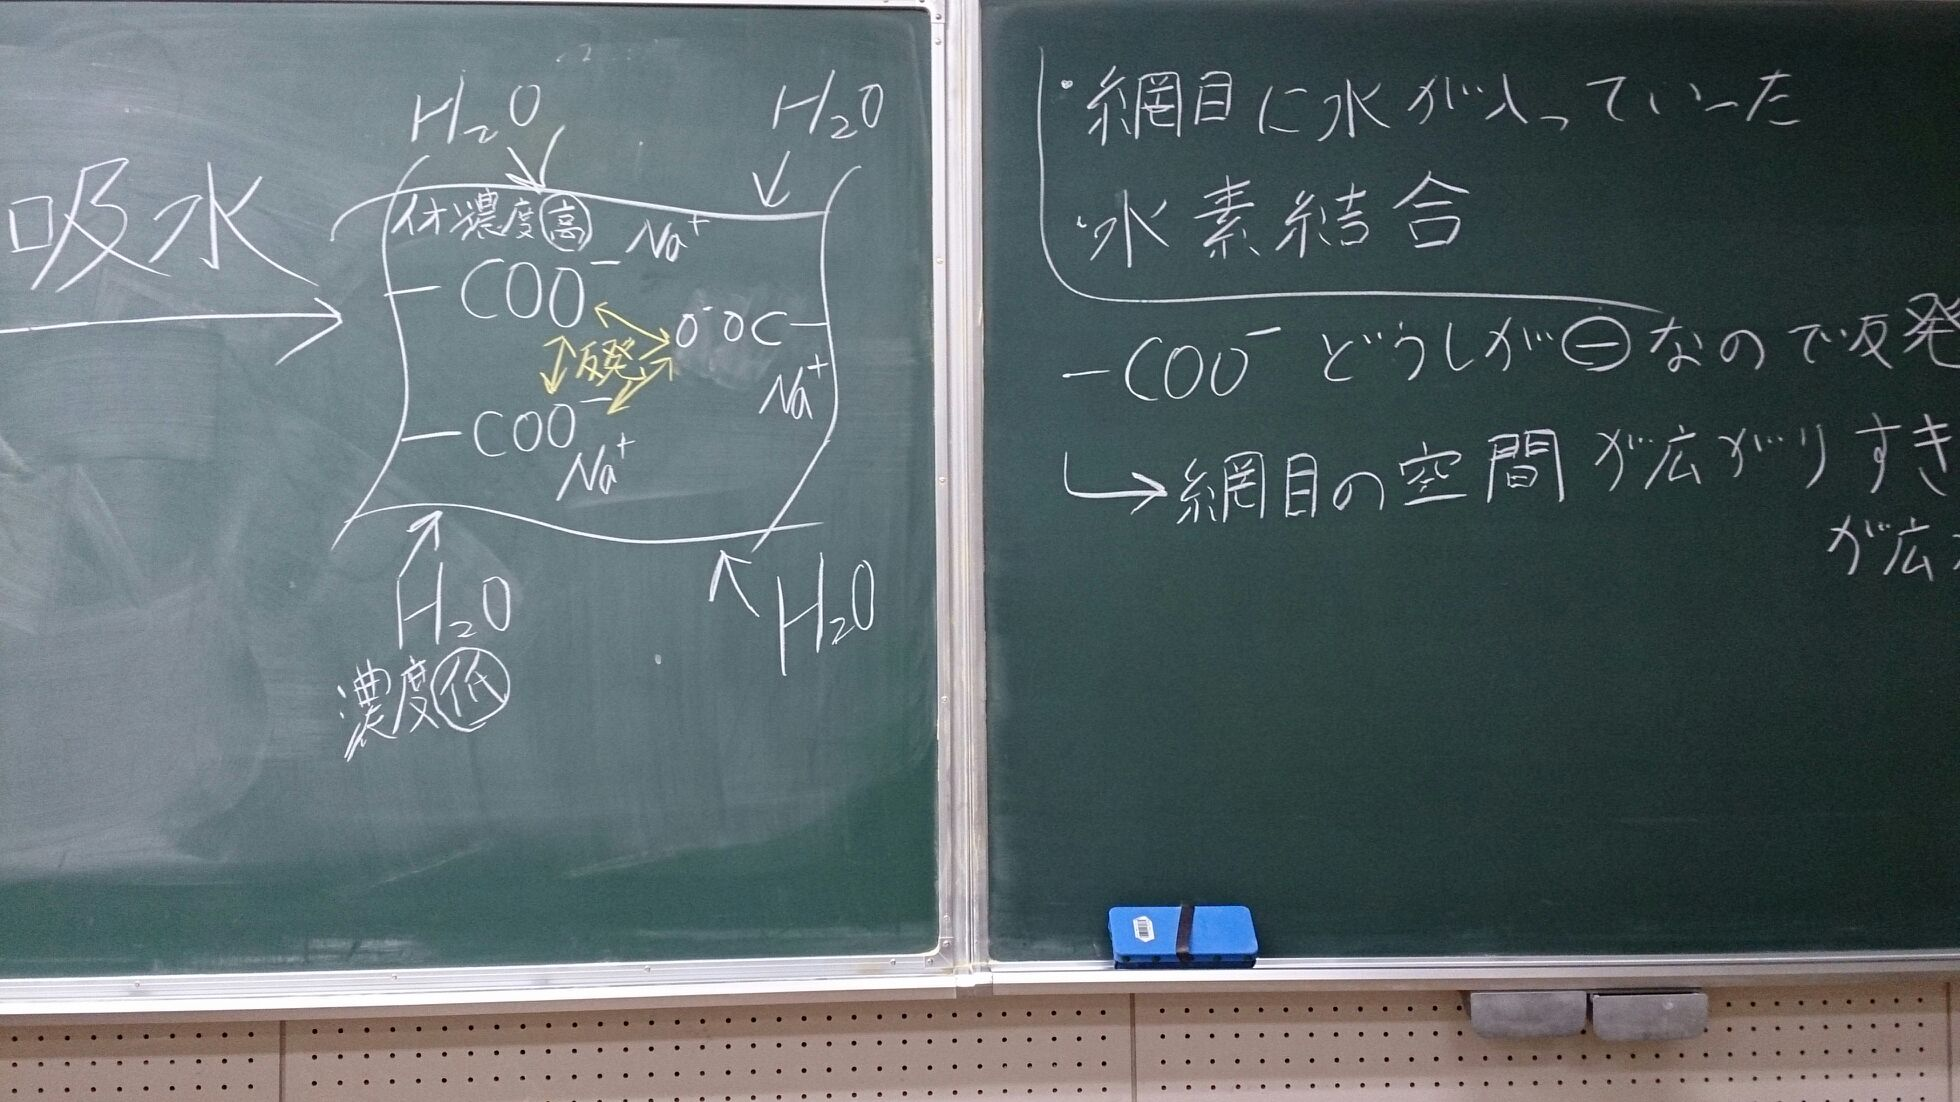 吸水
H₂O
H₂O
イオン濃度高
Na⁺
-COO⁻
O⁻OC-
反発
Na⁺
-COO⁻
Na⁺
H₂O
H₂O
濃度低
・網目に水が入っていった
・水素結合
-COO⁻どうしが⊖なので反発
↳網目の空間が広がりすき
が広